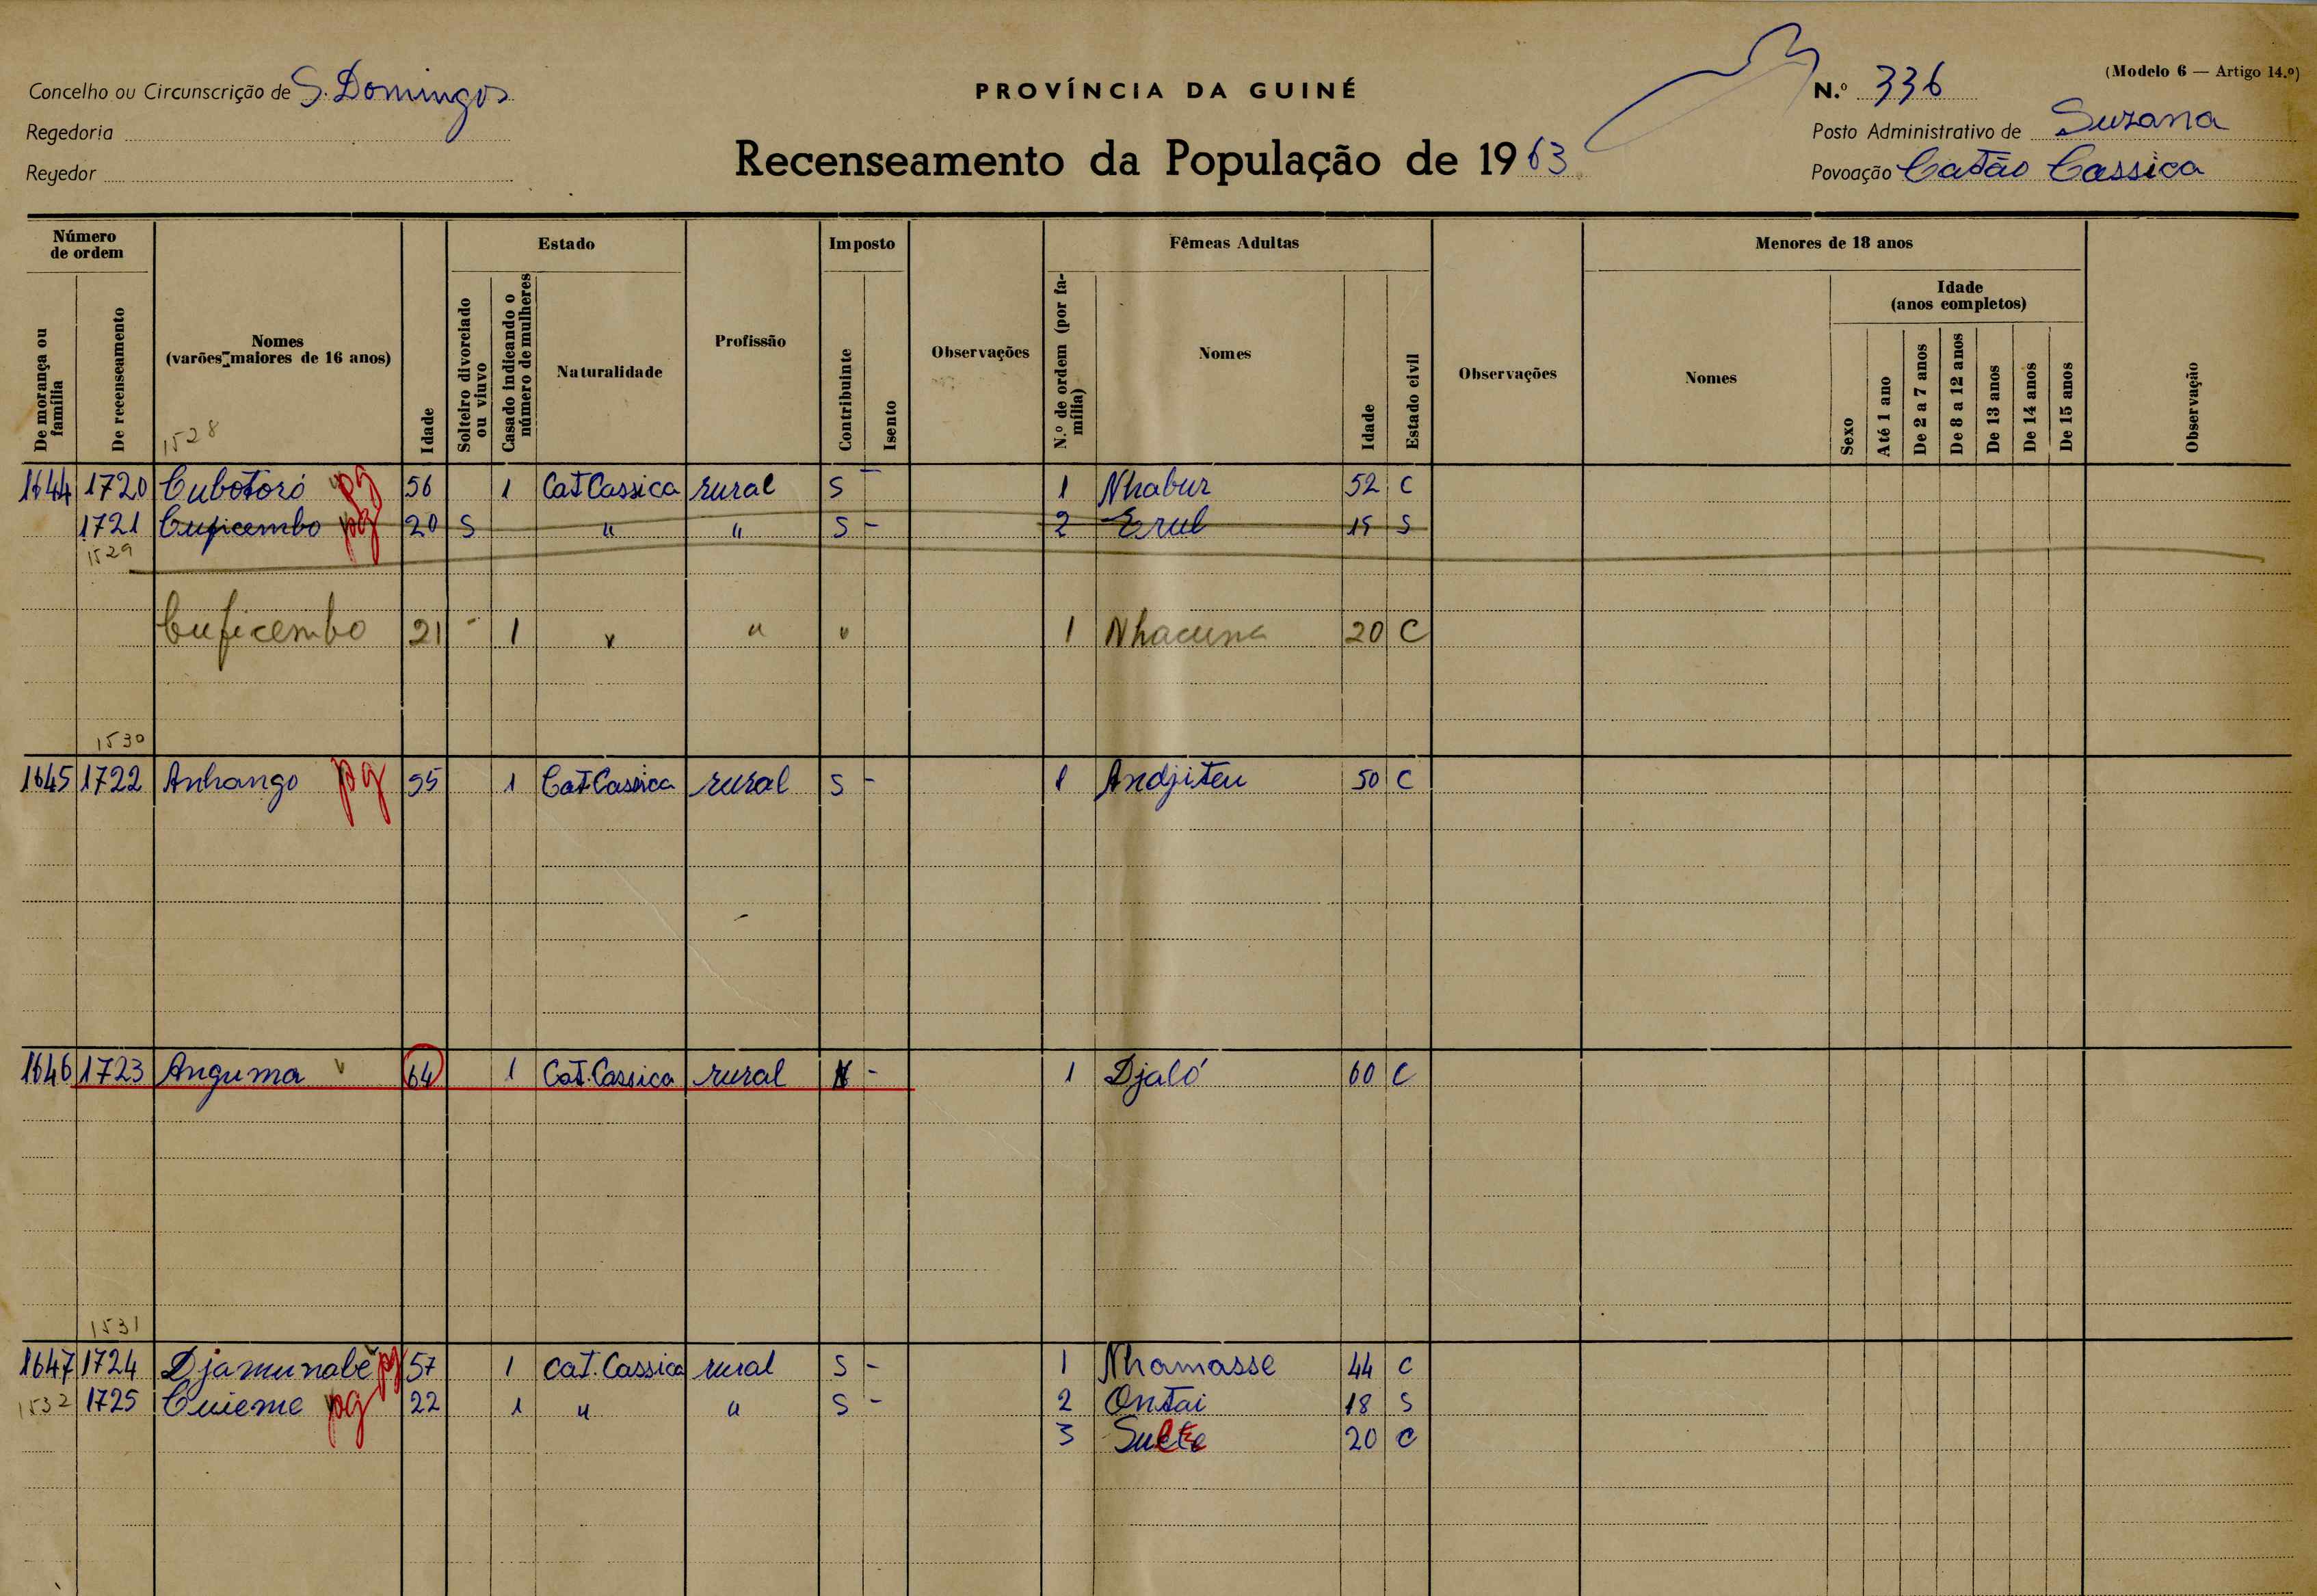 Concelho ou Circunscrição de S. Domingos
Regedoria
Regedor
PROVÍNCIA DA GUINÉ
Recenseamento da População de 1963
(Modelo 6 — Artigo 14.º)
N.º 336
Posto Administrativo de Suzana
Povoação Catão Cassica
Número de ordem
De morança ou família
De recenseamento
Nomes
(varões maiores de 16 anos)
1528
Idade
Estado
Solteiro divorciado ou viuvo
Casado indicando o número de mulheres
Naturalidade
Profissão
Imposto
Contribuinte
Isento
Observações
Fêmeas Adultas
N.º de ordem (por família)
Nomes
Idade
Estado civil
Observações
Menores de 18 anos
Nomes
Sexo
Idade
(anos completos)
Até 1 ano
De 2 a 7 anos
De 8 a 12 anos
De 13 anos
De 14 anos
De 15 anos
Observação
1644 1720 Cubotoró pg 56 1 Cat Cassica rural S - 1 Nhabur 52 C
1721 Cuficembo pg 20 S " " S - 2 Erul 15 S
1529
Cuficembo 21 - 1 " " " 1 Nhacuna 20 C
1530
1645 1722 Anhango pg 55 1 Cat Cassica rural S - 1 Andjiteu 50 C
1646 1723 Anguma 64 1 Cat. Cassica rural - 1 Djaló 60 C
1531
1647 1724 Djamunabe pg 57 1 Cat. Cassica rural S - 1 Nhamasse 44 C
1532 1725 Cuieme pg 22 1 " " S - 2 Ontai 18 S
3 20 C